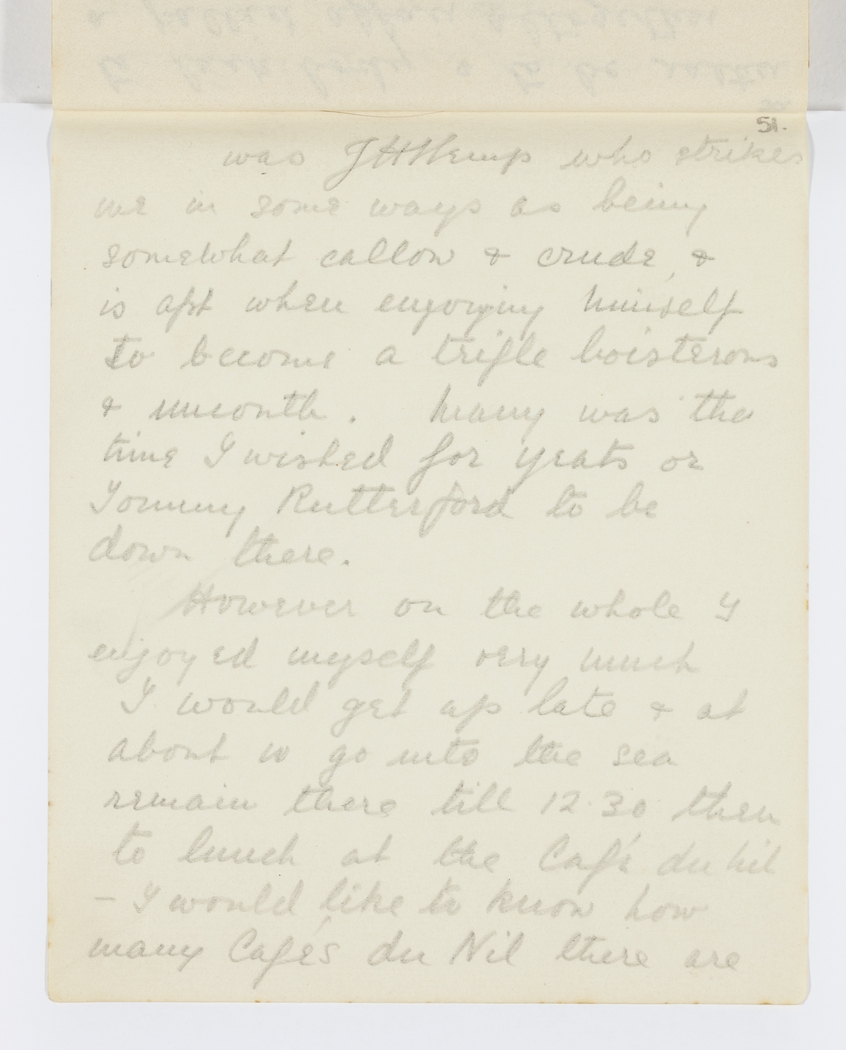 51.
was J H Kemp who strikes
me in some ways as being
somewhat callow & crude, &
is apt when enjoying himself
to become a trifle boisterous
& uncouth. Many was the
time I wished for Yeats or
Tommy Rutterford to be
down there.
However on the whole I
enjoyed myself very much
I would get up late & at
about 10 go into the sea
remain there till 12.30 then
to lunch at the Café du Nil
- I would like to know how
many Cafés du Nil there are